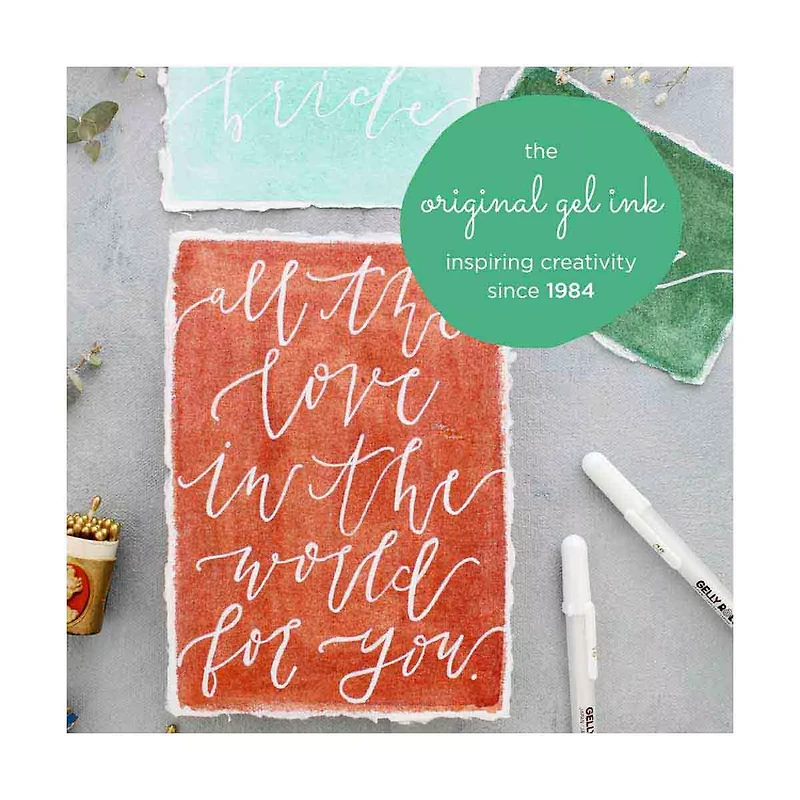 bride
the
original gel ink
inspiring creativity
since 1984
all the
love
in the
world
for you.
GELLY ROLL
GELLY